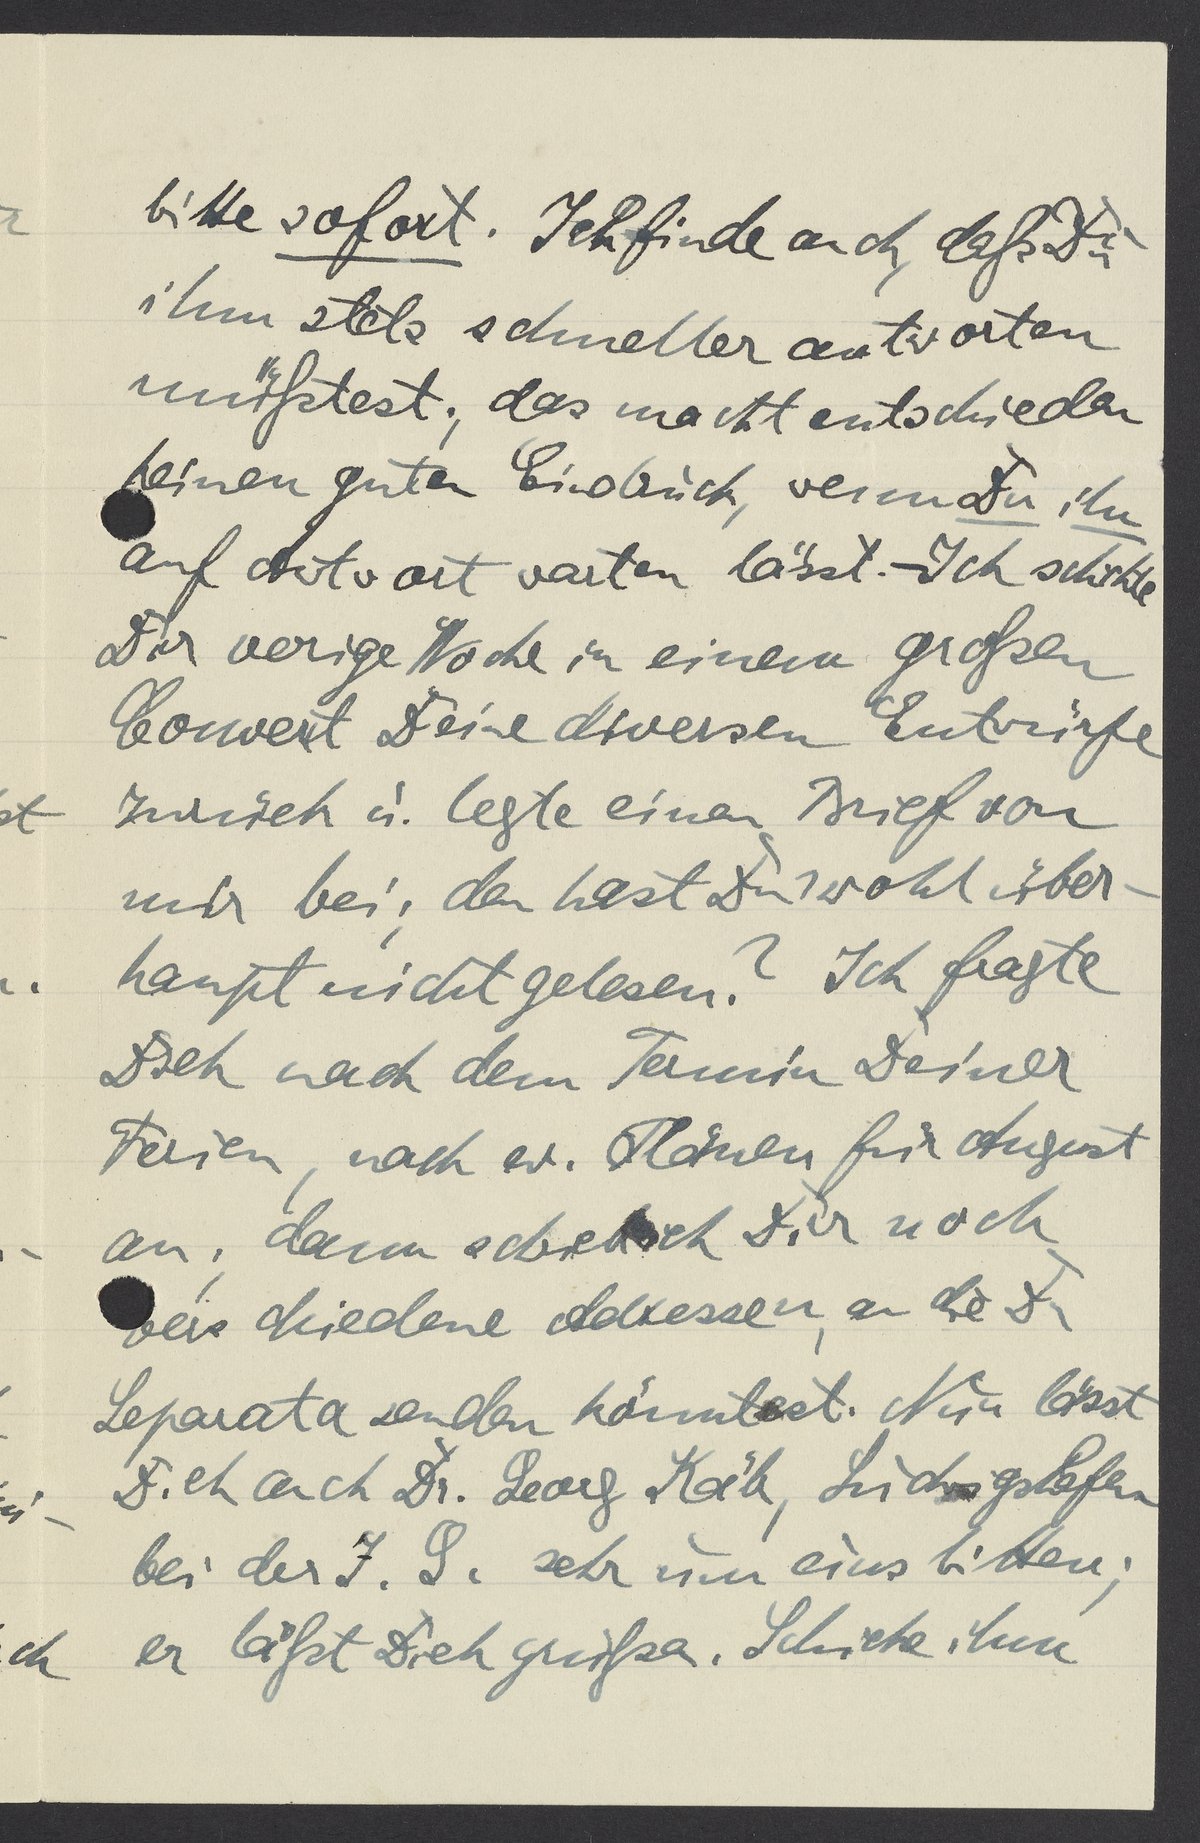 bitte sofort. Ich finde auch, daß Du
ihm stets schneller antworten
müßtest; das macht entschieden
keinen guten Eindruck, wenn Du ihn
auf Antwort warten lässt. – Ich schickte
Dir vorige Woche in einem großen
Couvert Deine diversen Entwürfe
zurück u. legte einen Brief von
mir bei; den hast Du wohl über-
haupt nicht gelesen? Ich fragte
Dich nach dem Termin Deiner
Ferien, nach ev. Plänen für August
an; dann schrieb ich Dir noch
verschiedene Adressen, an die Du
Separata senden könntest. Nun lässt
Dich auch Dr. Georg Käb, Ludwigshafen
bei der I. G. sehr um eins bitten;
er läßt Dich grüßen. Schicke ihm